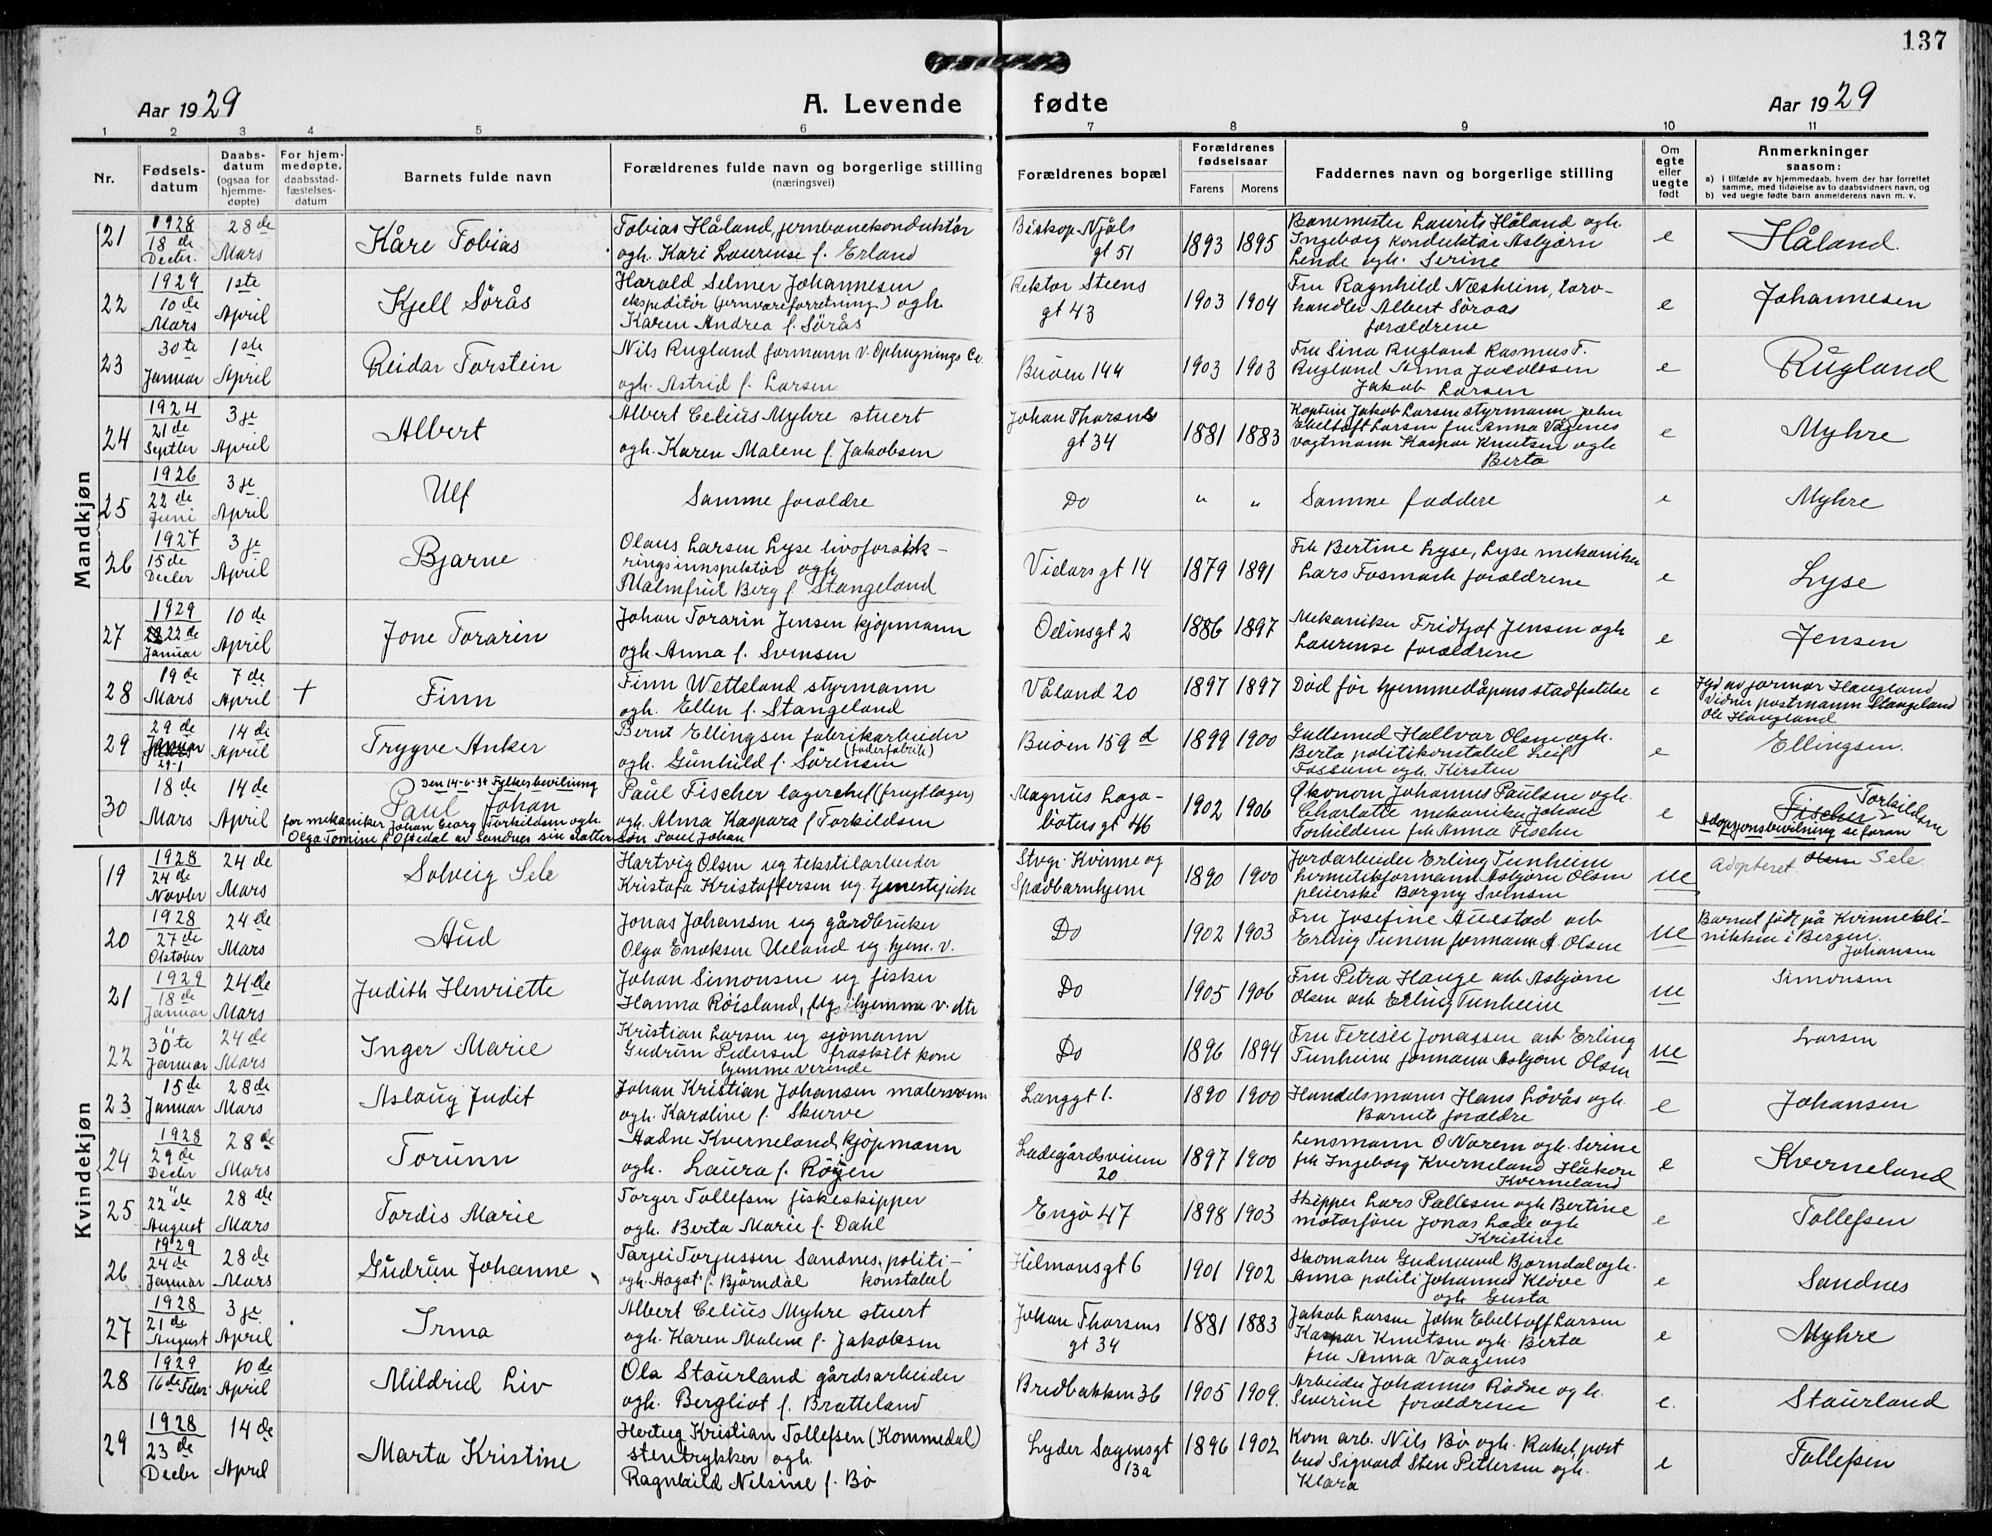 137
Aar 1929
A. Levende fødte
Aar 1929
1 2 3 4 5 6 7 8 9 10 11
Nr.
Fødsels-datum
Daabs-datum (ogsaa for hjemme-døpte)
For hjem-medøpte, daabsstad-fæstelses-datum
Barnets fulde navn
Forældrenes fulde navn og borgerlige stilling (næringsvei)
Forældrenes bopæl
Forældrenes fødselsaar
Farens Morens
Faddernes navn og borgerlige stilling
Om egte eller uegte født
Anmerkninger saasom:
a) I tilfælde av hjemmedaab, hvem der har forrettet samme, med tilføielse av to daabsvidners navn, og
b) ved uegte fødte barn anmelderens navn m. v.
Mandkjøn
21 1928 18de Decbr. 28de Mars Kåre Tobias
Tobias Håland, jernbanekonduktør
ogh. Kari Laurense f. Erland
Biskop Njåls
gt 51
1893 1895
Banemester Laurits Håland ogh.
Ingeborg Konduktør Asbjørn
Lende ogh. Serine
e Håland.
22 1929 10de Mars 1ste April Kjell Sörås
Harald Selmer Johannesen
ekspeditör (jernvareforretning) ogh
Karen Andrea f. Sörås
Rektor Steens
gt 43
1903 1904
Fru Ragnhild Næsheim, torv-
handler Albert Söraas
forældrene
e Johannesen
23 30te Januar 1ste April Reidar Torstein
Nils Rugland formann v. Ophugnings Co.
ogh. Astrid f. Larsen
Buöen 144
1903 1903
Fru Sina Rugland Rasmus T.
Rugland Anna Jacobsen
Jakob Larsen
e Rugland
24 1924 21de Septbr 3je April Albert
Albert Celius Myhre stuert
ogh. Karen Malene f. Jakobsen
Johan Thorsens
gt 34
1881 1883
Kaptein Jakob Larsen styrmann John
Ebeltoft Larsen fru Anna Vågenes
vagtmann Kaspar Knutsen ogh
Berta
e Myhre
25 1926 22de Juni 3je April Ulf
Samme foraldre
Do " "
Samme faddere
e Myhre
26 1927 15de Decbr 3je April Bjarne
Olaus Larsen Lyse livsforsik-
ringsinnspektör ogh
Malmfrid Berg f. Stangeland
Vidars gt 14
1879 1891
Frk Bertine Lyse, Lyse mekaniker
Lars Fosmark forældrene
e Lyse
27 1929 22de Januar 10de April Jone Torarin
Johan Torarin Jensen kjöpmann
ogh. Anna f. Svensen
Odinsgt 2
1886 1897
Mekaniker Fridtjof Jensen ogh
Laurense forældrene
e Jensen
28 19de Mars 7de April + Finn
Finn Wetteland styrmann
ogh. Ellen f. Stangeland
Våland 20
1897 1897
Död för hjemmedåpens stadfestelse
e
Jfd av jormor Haugland
Vidner postmann Stangeland
Ole Haugland
29 29de Januar 29-1 14de April Trygve Anker
Bernt Ellingsen fabrikarbeider
(foderfabrik)
ogh. Gunhild f. Sörensen
Buöen 159d
1899 1900
Gullsmed Hallvar Olsen ogh.
Berta politikonstabel Leif
Fossum ogh. Kirsten
e Ellingsen.
30 18de Mars 14de April
Den 14-6-34 Fylkesbevilning
Paul Johan
for mekaniker Johan Georg Torkildsen ogh.
Olga Tomine f. Opsedal av Sandnes sin dattersön Paul Johan
Paul Fischer lagerchef (frugtlager)
ogh. Alma Kaspara f Torkildsen
Magnus Laga-
böters gt 46
1902 1906
Økonom Johannes Paulsen ogh.
Charlotte mekaniker Johan
Torkildsen frk Anna Fischer
e
Fischer Torkildsen
Adopsjonsbevilning se foran
Kvindekjøn
19 1928 24de Novbr 24de Mars Solveig Sele
Hartvig Olsen ug tekstilarbeider
Kristofa Kristoffersen ug. tjenestepike
Stvgr. Kvinne og
Spædbarnhjem
1890 1900
Jordarbeider Erling Tunheim
hermetikformann Asbjörn Olsen
pleierske Borgny Svensen
ue
Adopteret Olsen Sele.
20 1928 27de Oktober 24de Mars Aud
Jonas Johansen ug gårdbruker
Olga Enoksen Ueland ug hjem. v.
Do
1902 1903
Fru Josefine Auestad arb
Erling Tunem formann A. Olsen
ue
Barnet födt på Kvinnekli-
nikken i Bergen.
Johansen
21 1929 18de Januar 24de Mars Judith Henriette
Johan Simonsen ug fisker
Hanna Röisland, ug hjemmev. dtr
Do
1905 1906
Fru Petra Hauge arb Asbjörn
Olsen arb Erling Tunheim
ue Simonsen
22 30te Januar 24de Mars Inger Marie
Kristian Larsen ug sjömann
Gudrun Pedersen fraskilt kone
hjemmeverende
Do
1896 1894
Fru Teresie Jonassen arb Erling
Tunheim formann Asbjörn Olsen
ue Larsen
23 15de Januar 28de Mars Aslaug Judit
Johan Kristian Johansen malersvenn
ogh. Karoline f. Skurve
Langgt 1.
1890 1900
Handelsmann Hans Lövås ogh.
Barnets forældre
e Johansen
24 1928 29de Decbr 28de Mars Torunn
Hadne Kverneland, kjöpmann
ogh. Laura f. Röyen
Ladegårdsveien
20
1897 1900
Lensmann O Norem ogh. Serine
frk Ingeborg Kverneland Håkon
Kverneland
e Kverneland
25 " 22de August 28de Mars Tordis Marie
Torger Tollefsen fiskeskipper
ogh. Berta Marie f. Dahl
Engö 47
1898 1903
Skipper Lars Pallesen ogh Bertine
motorförer Jonas Lade ogh
Kristine
e Tollefsen
26 1929 24de Januar 28de Mars Gudrun Johanne
Tarjei Torjussen Sandnes, politi-
konstabel
ogh. Hagat f. Bjørndal
Hilmansgt 6
1901 1902
Skomaker Gudmund Bjørndal ogh.
Anna politi Johannes Klöve
ogh Gusta
e Sandnes
27 1928 21de August 3je April Irma
Albert Celius Myhre stuert
ogh. Karen Malene f. Jakobsen
Johan Thorsens
gt 34
1881 1883
Jakob Larsen John Ebeltoff Larsen
Kaspar Knutsen ogh. Berta
fru Anna Vaagenes
e Myhre
28 1929 16de Febr 10de April Mildrid Liv
Ola Staurland gårdsarbeider
ogh. Bergliot f. Bratteland
Bredbakken 36
1905 1909.
Arbeider Johannes Rödne ogh.
Severine forældrene
e. Staurland
29 1928 23de Decbr 14de April Marta Kristine
Hertug Kristian Tollefsen (Kommedal)
stentrykker ogh.
Ragnhild Nilsine f. Bö
Lyder Sagensgt
13a
1896 1902
Kom arb. Nils Bö ogh. Rakel, post
bud Sigvard Sten Pettersen ogh.
Klara
e Tollefsen